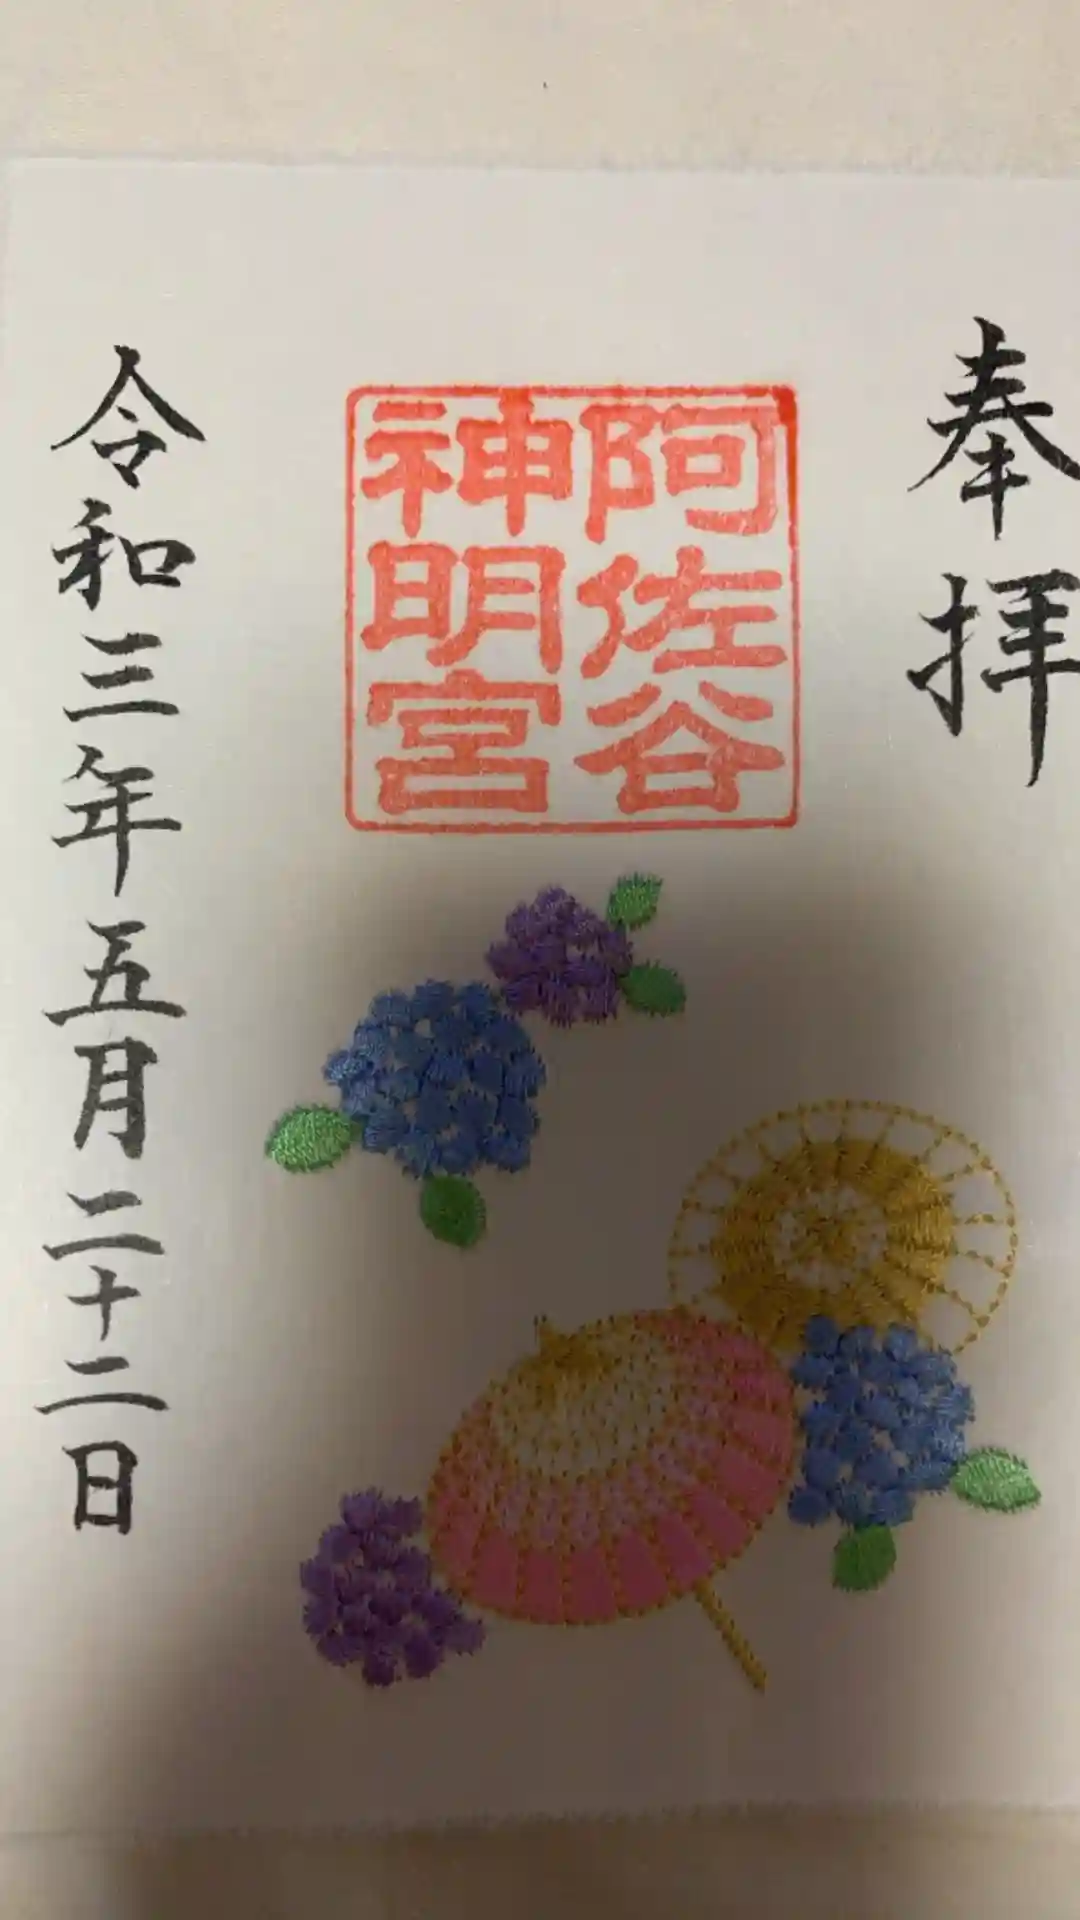 奉拝
阿佐谷
神明宮
令和三年五月二十二日